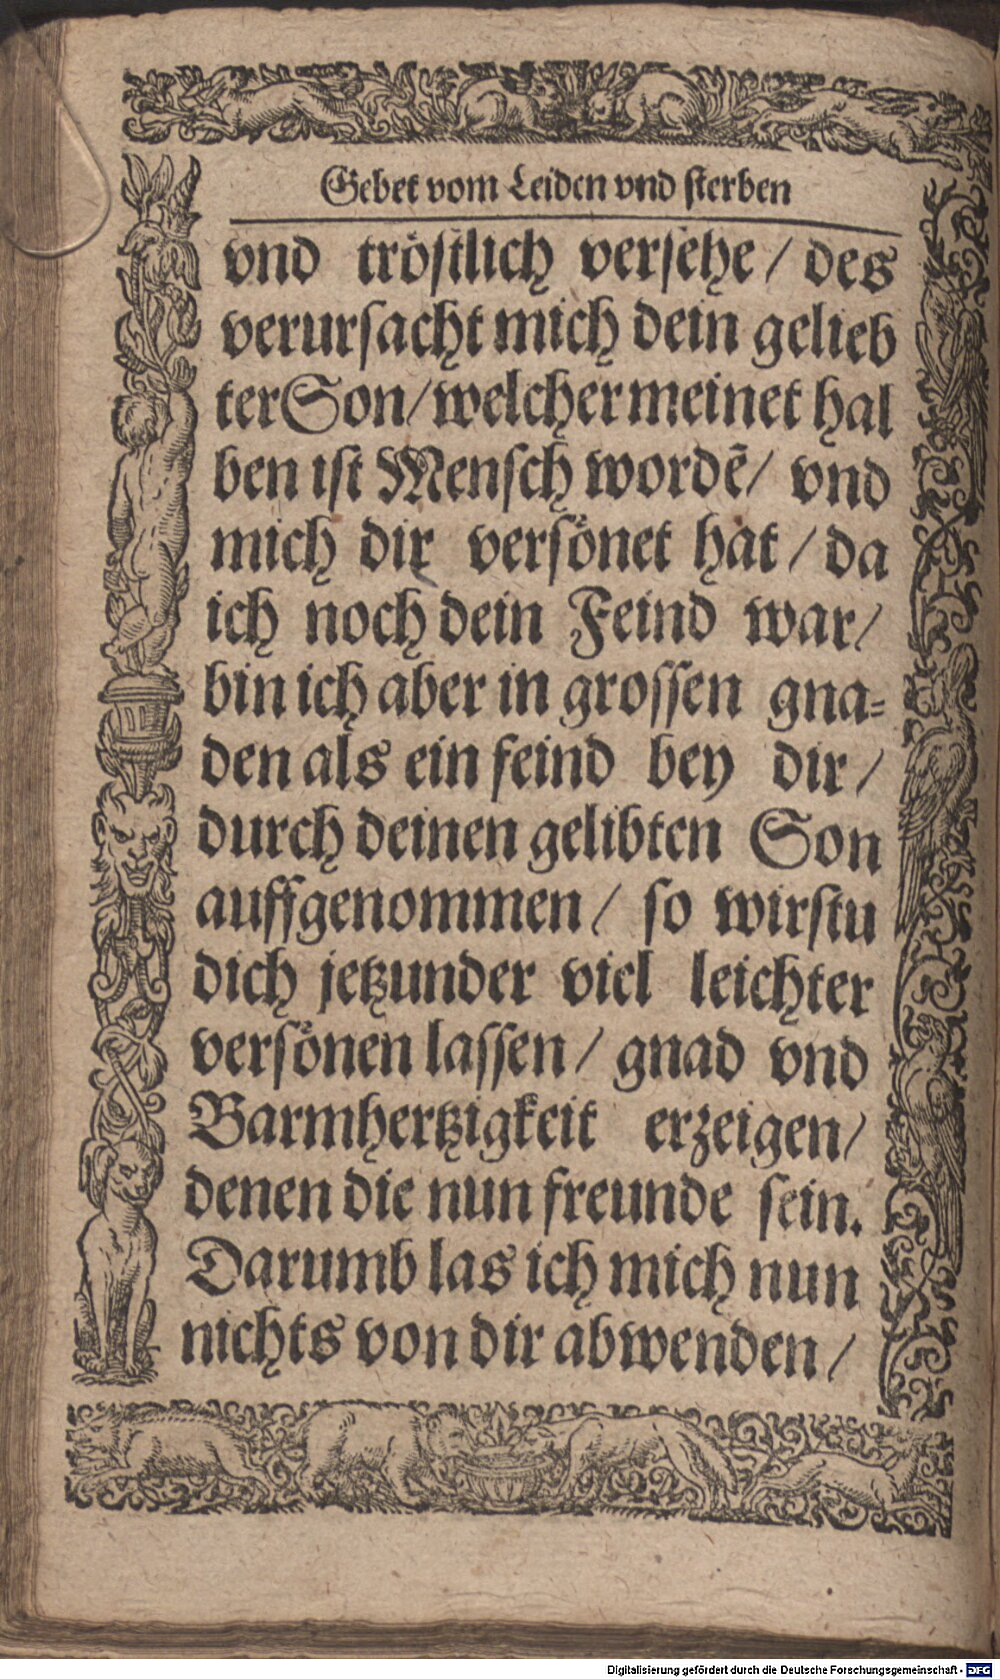 Gebet vom Leiden vnd sterben
vnd tröstlich versehe / des
verursacht mich dein gelieb
ter Son / welcher meinet hal
ben ist Mensch wordẽ / vnd
mich dir versönet hat / da
ich noch dein Feind war /
bin ich aber in grossen gna-
den als ein feind bey dir /
durch deinen gelibten Son
auffgenommen / so wirstu
dich jetzunder viel leichter
versönen lassen / gnad vnd
Barmhertzigkeit erzeigen /
denen die nun freunde sein.
Darumb las ich mich nun
nichts von dir abwenden /
Digitalisierung gefördert durch die Deutsche Forschungsgemeinschaft - DFG